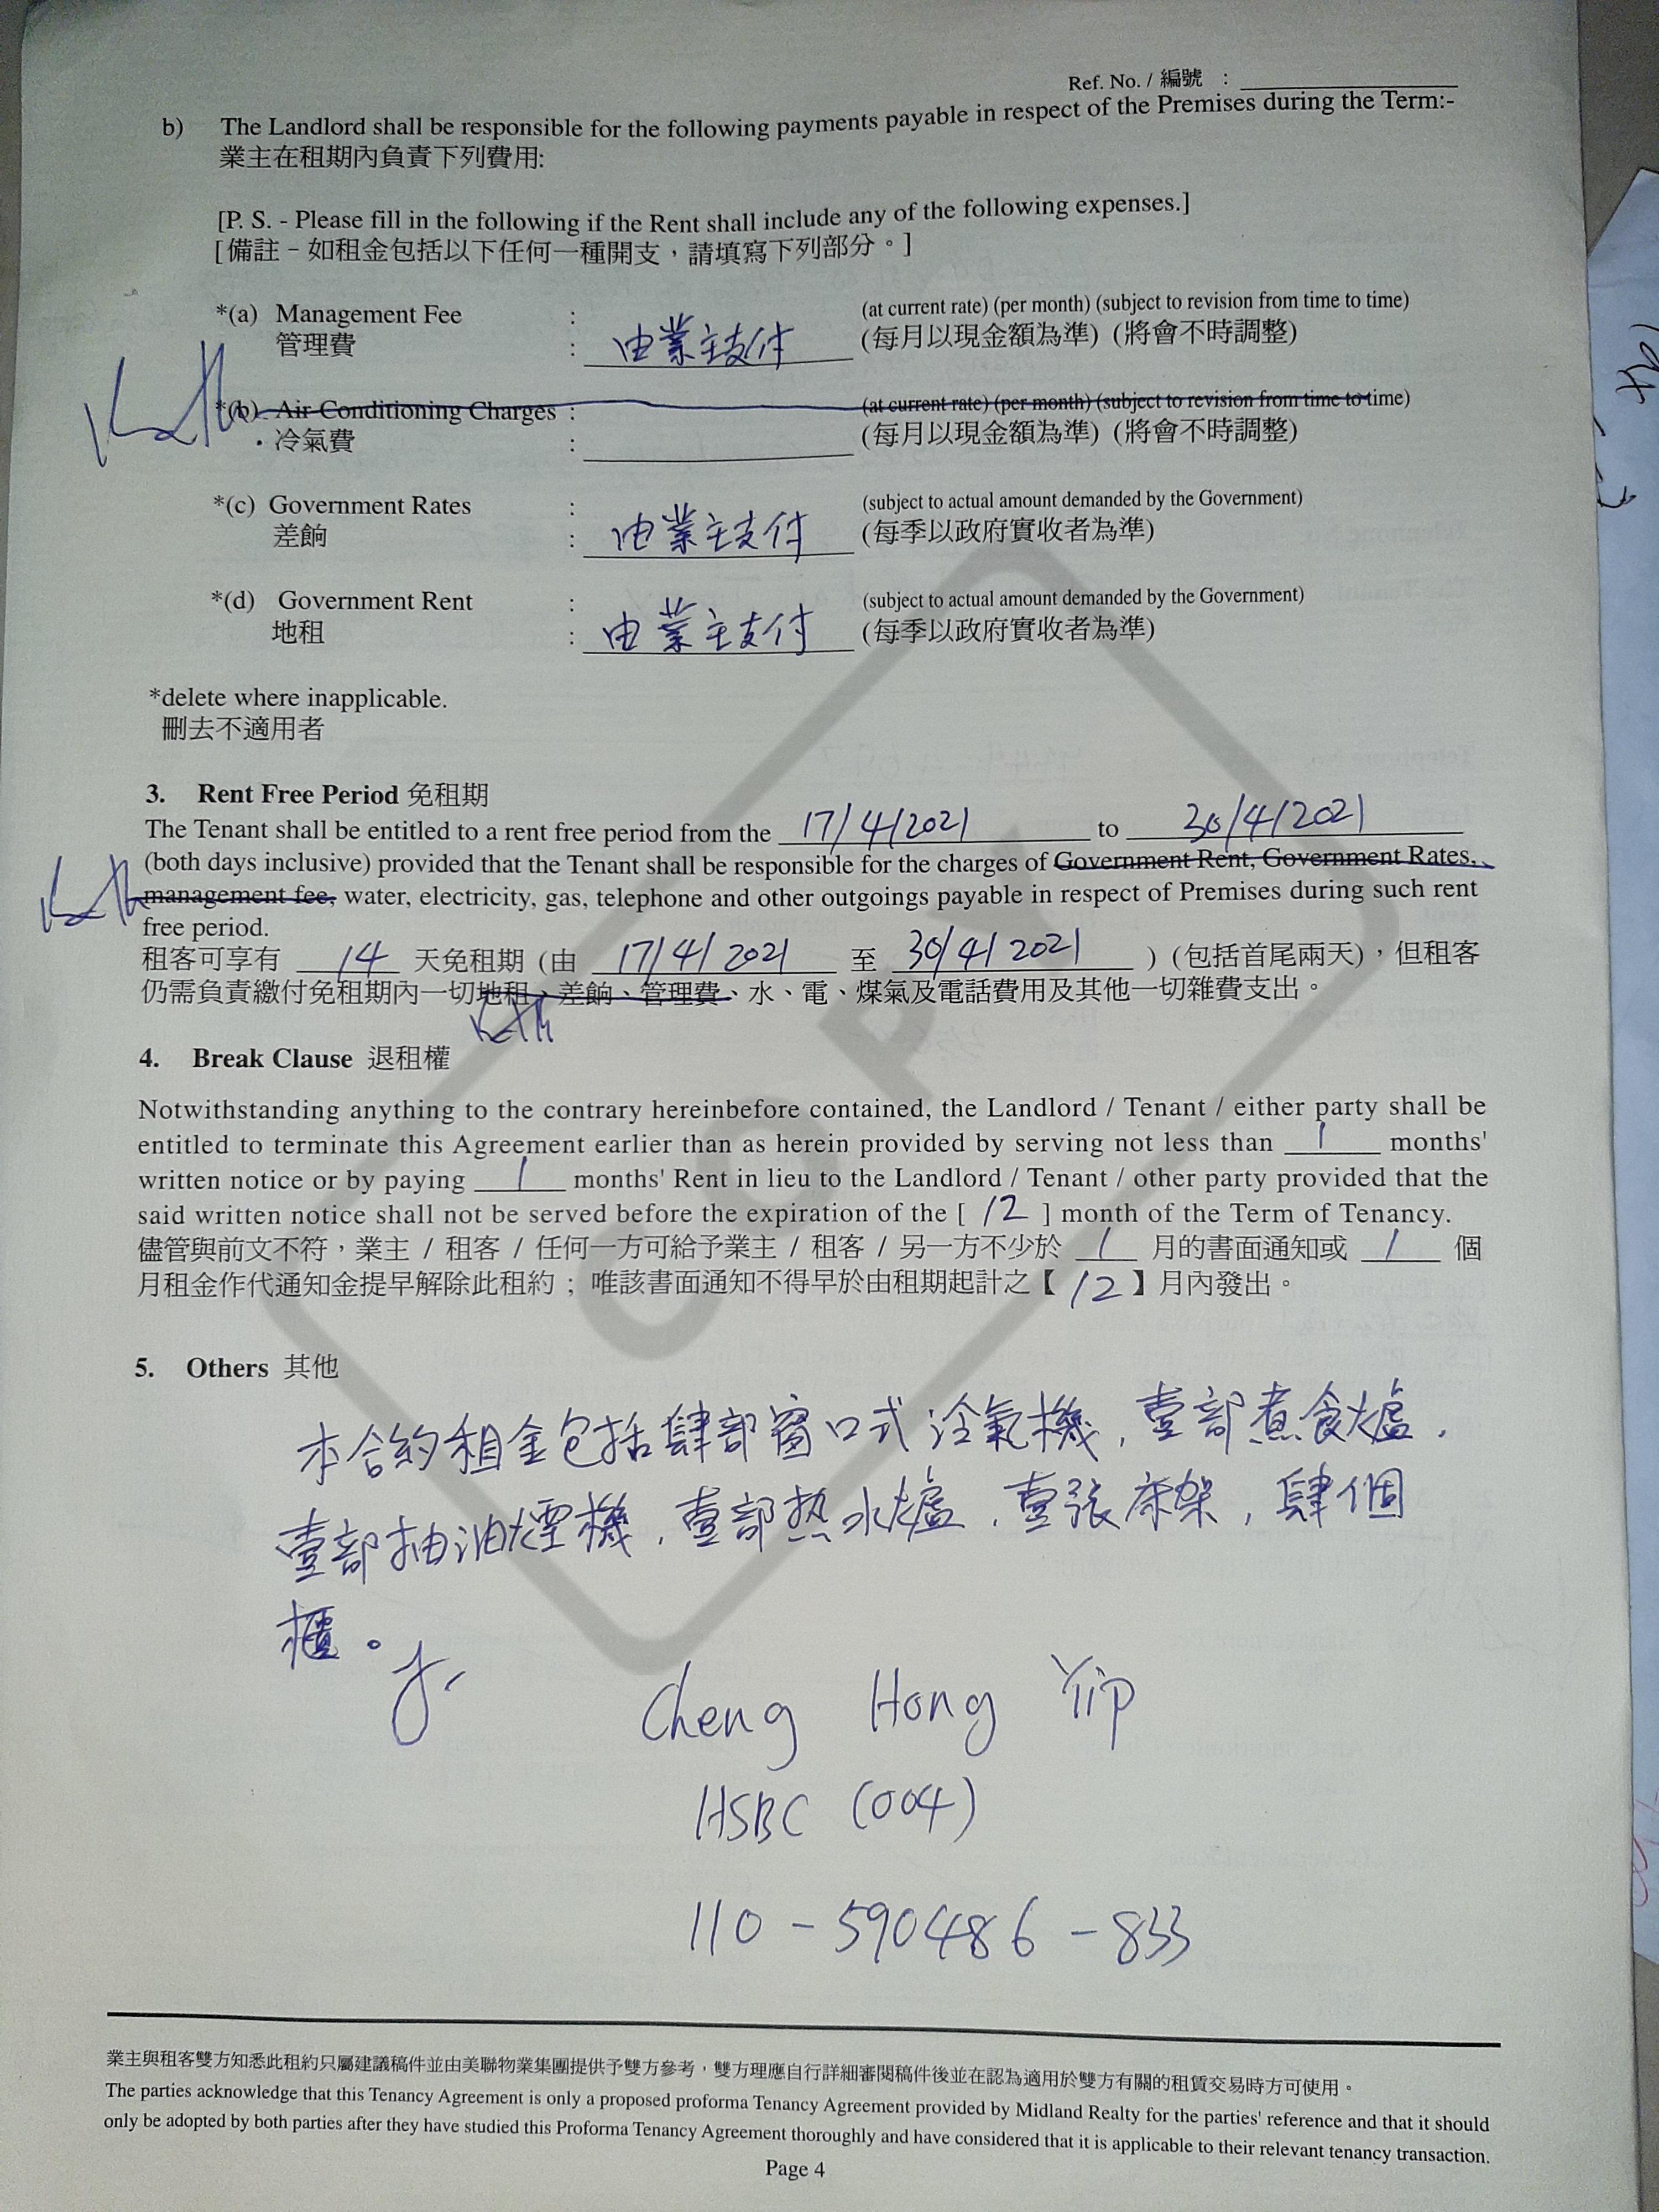 Ref. No. / 編號 :
b) The Landlord shall be responsible for the following payments payable in respect of the Premises during the Term:-
業主在租期內負責下列費用:
[P. S. - Please fill in the following if the Rent shall include any of the following expenses.]
[備註 – 如租金包括以下任何一種開支，請填寫下列部分。]
*(a) Management Fee : (at current rate) (per month) (subject to revision from time to time)
管理費 : 由業主支付 (每月以現金額為準) (將會不時調整)
*(b) Air-Conditioning Charges : (at current rate) (per month) (subject to revision from time to time)
冷氣費 : (每月以現金額為準) (將會不時調整)
*(c) Government Rates : (subject to actual amount demanded by the Government)
差餉 : 由業主支付 (每季以政府實收者為準)
*(d) Government Rent : (subject to actual amount demanded by the Government)
地租 : 由業主支付 (每季以政府實收者為準)
*delete where inapplicable.
刪去不適用者
3. Rent Free Period 免租期
The Tenant shall be entitled to a rent free period from the 17/4/2021 to 30/4/2021
(both days inclusive) provided that the Tenant shall be responsible for the charges of Government Rent, Government Rates,
management fee, water, electricity, gas, telephone and other outgoings payable in respect of Premises during such rent
free period.
租客可享有 14 天免租期 (由 17/4/2021 至 30/4/2021 ) (包括首尾兩天)，但租客
仍需負責繳付免租期內一切地租、差餉、管理費、水、電、煤氣及電話費用及其他一切雜費支出。
4. Break Clause 退租權
Notwithstanding anything to the contrary hereinbefore contained, the Landlord / Tenant / either party shall be
entitled to terminate this Agreement earlier than as herein provided by serving not less than 1 months'
written notice or by paying 1 months' Rent in lieu to the Landlord / Tenant / other party provided that the
said written notice shall not be served before the expiration of the [ 12 ] month of the Term of Tenancy.
儘管與前文不符，業主 / 租客 / 任何一方可給予業主 / 租客 / 另一方不少於 1 月的書面通知或 1 個
月租金作代通知金提早解除此租約；唯該書面通知不得早於由租期起計之【 12 】月內發出。
5. Others 其他
本合約租金包括肆部窗口式冷氣機，壹部煮食爐，
壹部抽油煙機，壹部热水爐，壹張床架，肆個
櫃。
Cheng Hong Yip
HSBC (004)
110 - 590486 - 833
業主與租客雙方知悉此租約只屬建議稿件並由美聯物業集團提供予雙方參考，雙方理應自行詳細審閱稿件後並在認為適用於雙方有關的租賃交易時方可使用。
The parties acknowledge that this Tenancy Agreement is only a proposed proforma Tenancy Agreement provided by Midland Realty for the parties' reference and that it should
only be adopted by both parties after they have studied this Proforma Tenancy Agreement thoroughly and have considered that it is applicable to their relevant tenancy transaction.
Page 4
COPY